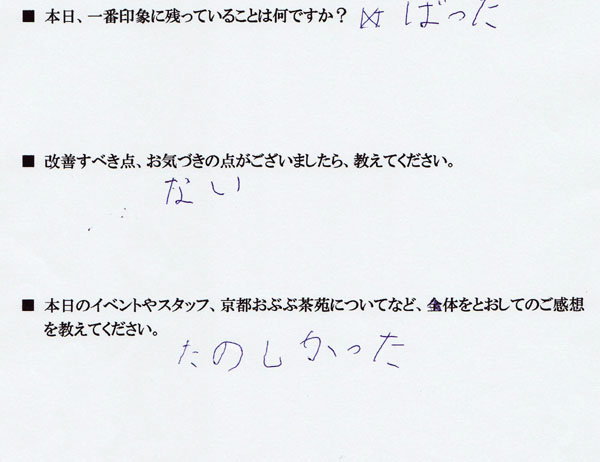 ■ 本日、一番印象に残っていることは何ですか？ ばった
■ 改善すべき点、お気づきの点がございましたら、教えてください。
ない
■ 本日のイベントやスタッフ、京都おぶぶ茶苑についてなど、全体をとおしてのご感想
を教えてください。
たのしかった